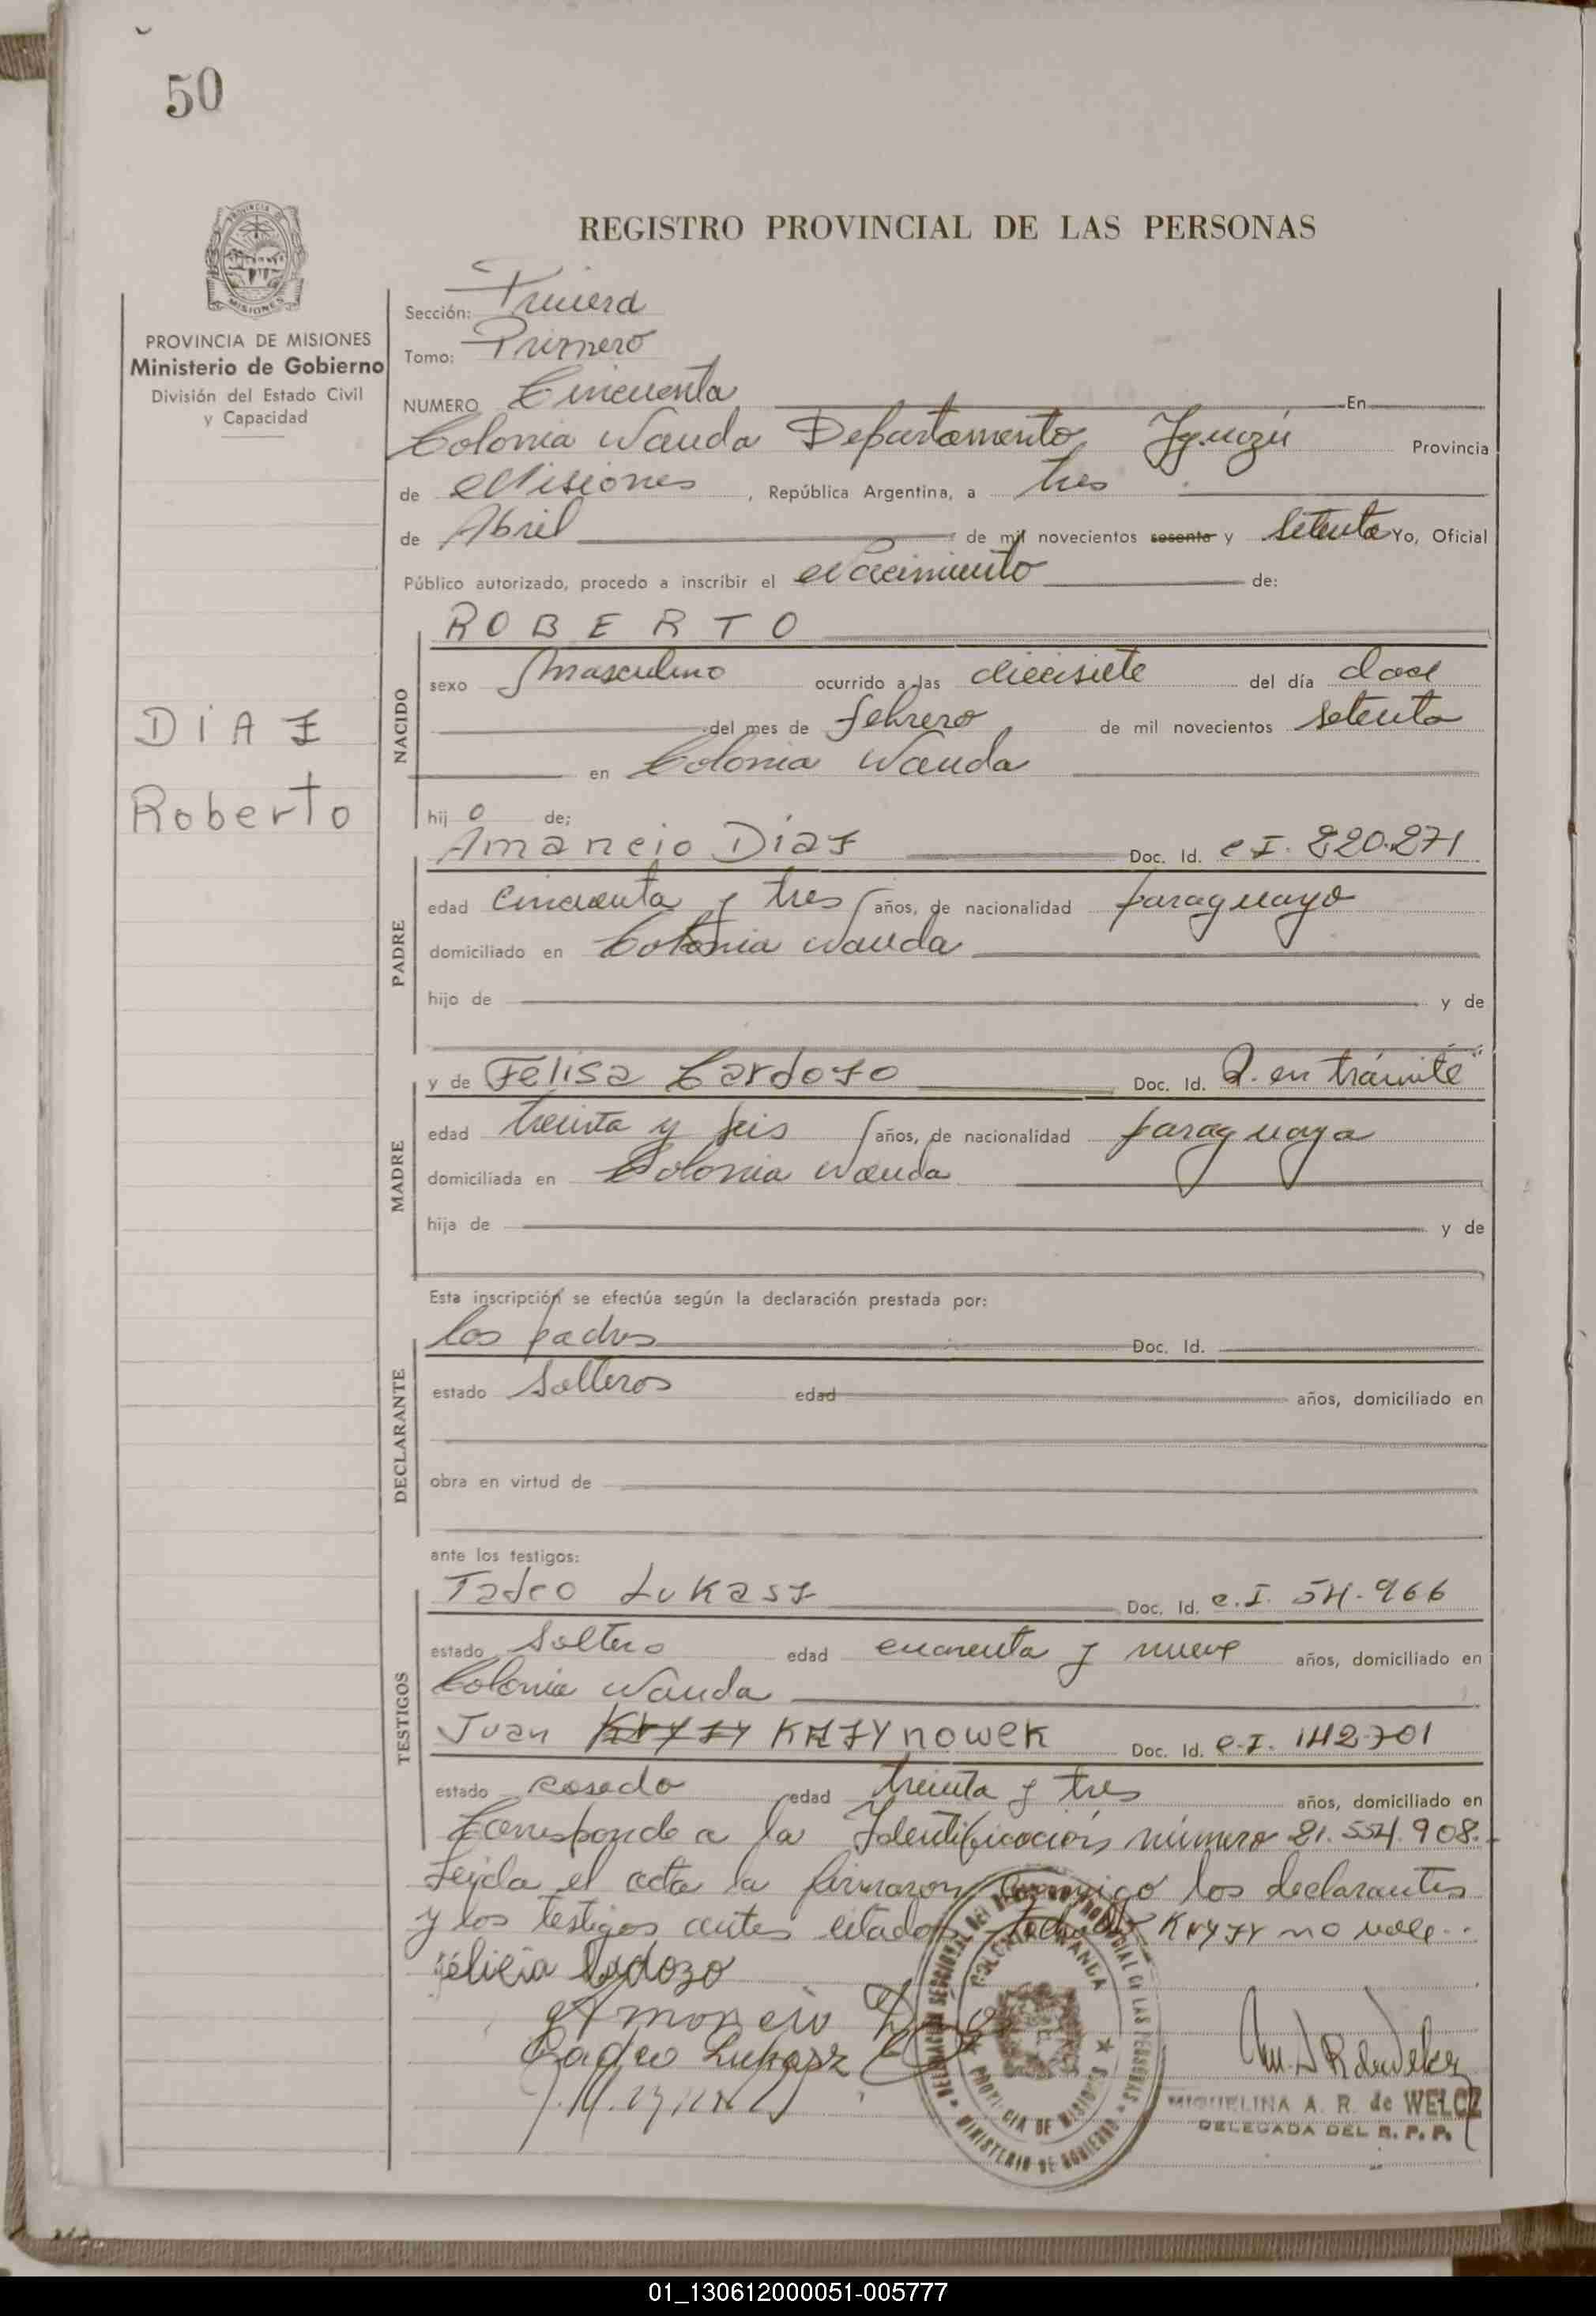 50
REGISTRO PROVINCIAL DE LAS PERSONAS
PROVINCIA DE MISIONES
Ministerio de Gobierno
División del Estado Civil
y Capacidad
DIAZ
Roberto
Sección: Primera
Tomo: Primero
NUMERO Cincuenta En
Colonia Wanda Departamento Iguazú Provincia
de Misiones, República Argentina, a tres
de Abril de mil novecientos sesenta y setenta Yo, Oficial
Público autorizado, procedo a inscribir el Nacimiento de:
NACIDO
ROBERTO
sexo Masculino ocurrido a las diecisiete del día doce
del mes de febrero de mil novecientos setenta
en Colonia Wanda
hijo de;
PADRE
Amancio Diaz Doc. Id. C.I. 220.271
edad cincuenta y tres años, de nacionalidad paraguayo
domiciliado en Colonia Wanda
hijo de y de
MADRE
y de Felisa Cardozo Doc. Id. D. en trámite
edad treinta y seis años, de nacionalidad paraguaya
domiciliada en Colonia Wanda
hija de y de
Esta inscripción se efectúa según la declaración prestada por:
DECLARANTE
los padres Doc. Id.
estado Solteros edad años, domiciliado en
obra en virtud de
ante los testigos:
TESTIGOS
Tadeo Lukasz Doc. Id. C.I. 54.966
estado Soltero edad cuarenta y nueve años, domiciliado en
Colonia Wanda
Juan KRYZY KRZYnowek Doc. Id. C.I. 142.701
estado casado edad treinta y tres años, domiciliado en
Corresponde a la Identificación número 21.554.908.
Leida el acta la firmaron conmigo los declarantes
y los testigos antes citados KRYZY no vale.
Felicia Cardozo
Amancio
Tadeo Lukasz
DELEGACION SECCIONAL DEL REGISTRO PROVINCIAL DE LAS PERSONAS
COLONIA WANDA
PROVINCIA DE MISIONES
MINISTERIO DE GOBIERNO
MIGUELINA A. R. de WELCZ
DELEGADA DEL R. P. P.
01_130612000051-005777